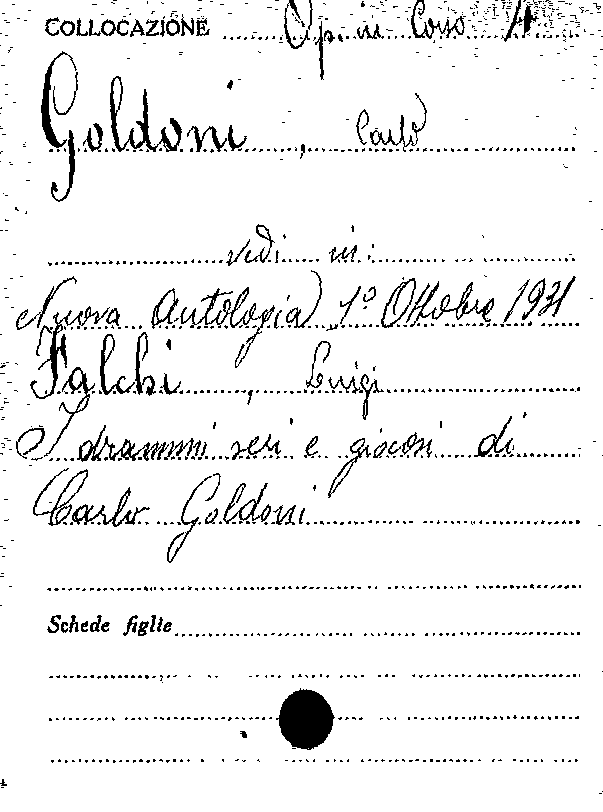 COLLOCAZIONE Op. in Corso A
Goldoni, Carlo
vedi in:
Nuova Antologia 1º Ottobre 1931
Falchi, Luigi
I drammi seri e giocosi di
Carlo Goldoni
Schede figlie